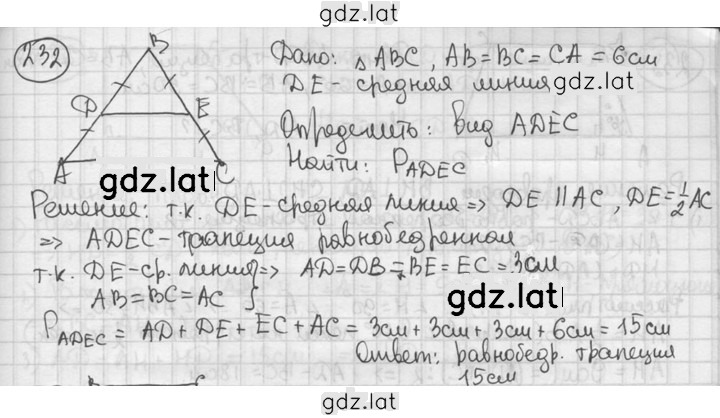 gdz.lat
232
B
Дано: △ABC, AB=BC=CA=6см
DE - средняя линия
gdz.lat
D E
Определить: вид ADEC
Найти: P ADEC
A C
gdz.lat
Решение: т.к. DE-средняя линия => DE || AC, DE=1/2 AC
=> ADEC-трапеция равнобедренная
т.к. DE-ср. линия => AD=DB=BE=EC=3см
AB=BC=AC }
gdz.lat
P ADEC = AD+DE+EC+AC=3см+3см+3см+6см=15см
Ответ: равнобедр. трапеция
15см
gdz.lat